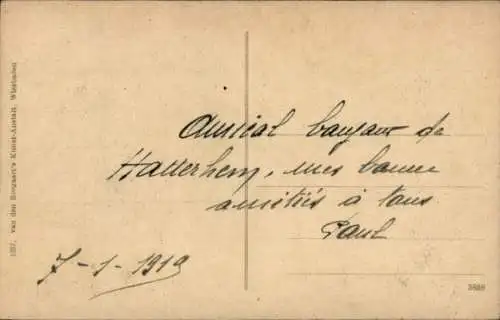 Amical bonjour de
Hattenheim, mes bonnes
amitiés à tous
Paul
7-1-1919
van den Boogaart's Kunst-Anstalt, Wiesbaden
3898